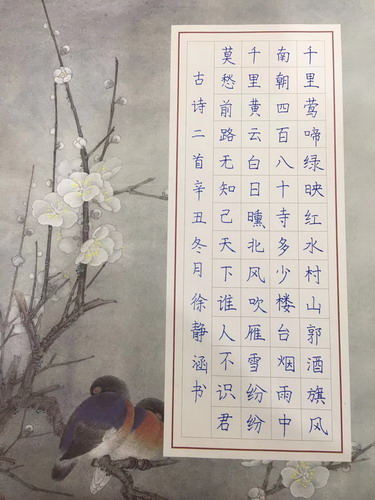 千里莺啼绿映红水村山郭酒旗风
南朝四百八十寺多少楼台烟雨中
千里黄云白日曛北风吹雁雪纷纷
莫愁前路无知己天下谁人不识君
古诗二首辛丑冬月徐静涵书